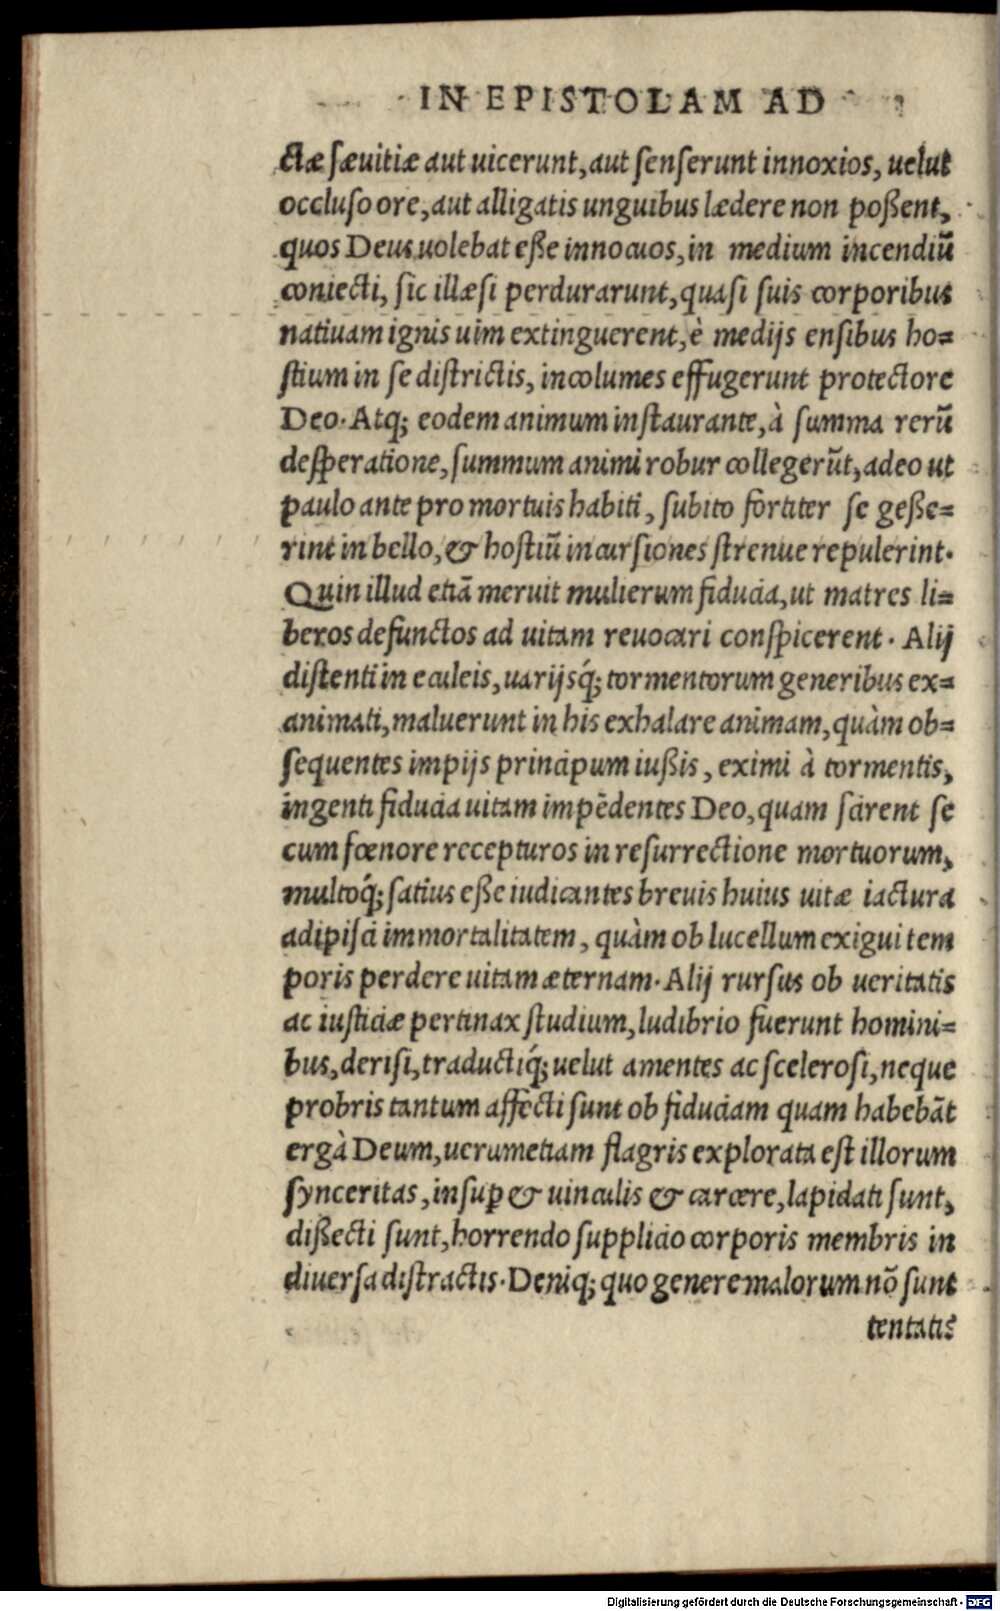 IN EPISTOLAM AD
ctæ sæuitiæ aut uicerunt, aut senserunt innoxios, uelut
occluso ore, aut alligatis unguibus lædere non poßent,
quos Deus uolebat eße innocuos, in medium incendiū
coniecti, sic illæsi perdurarunt, quasi suis corporibus
natiuam ignis uim extinguerent, è medijs ensibus ho=
stium in se districtis, incolumes effugerunt protectore
Deo. Atq; eodem animum instaurante, à summa rerū
desperatione, summum animi robur collegerūt, adeo ut
paulo ante pro mortuis habiti, subito fortiter se geße=
rint in bello, & hostiū incursiones strenue repulerint.
Quin illud etiā meruit mulierum fiducia, ut matres li=
beros defunctos ad uitam reuocari conspicerent. Alij
distenti in eculeis, uarijsq́; tormentorum generibus ex=
animati, maluerunt in his exhalare animam, quàm ob=
sequentes impijs principum iußis, eximi à tormentis,
ingenti fiducia uitam impēdentes Deo, quam scirent se
cum fœnore recepturos in resurrectione mortuorum,
multoq́; satius eße iudicantes breuis huius uitæ iactura
adipisci immortalitatem, quàm ob lucellum exigui tem
poris perdere uitam æternam. Alij rursus ob ueritatis
ac iusticiæ pertinax studium, ludibrio fuerunt homini=
bus, derisi, traductiq́; uelut amentes ac scelerosi, neque
probris tantum affecti sunt ob fiduciam quam habebāt
ergà Deum, uerumetiam flagris explorata est illorum
synceritas, insuꝑ & uinculis & carcere, lapidati sunt,
dißecti sunt, horrendo supplicio corporis membris in
diuersa distractis. Deniq; quo genere malorum nō sunt
tentatis
Digitalisierung gefördert durch die Deutsche Forschungsgemeinschaft - DFG